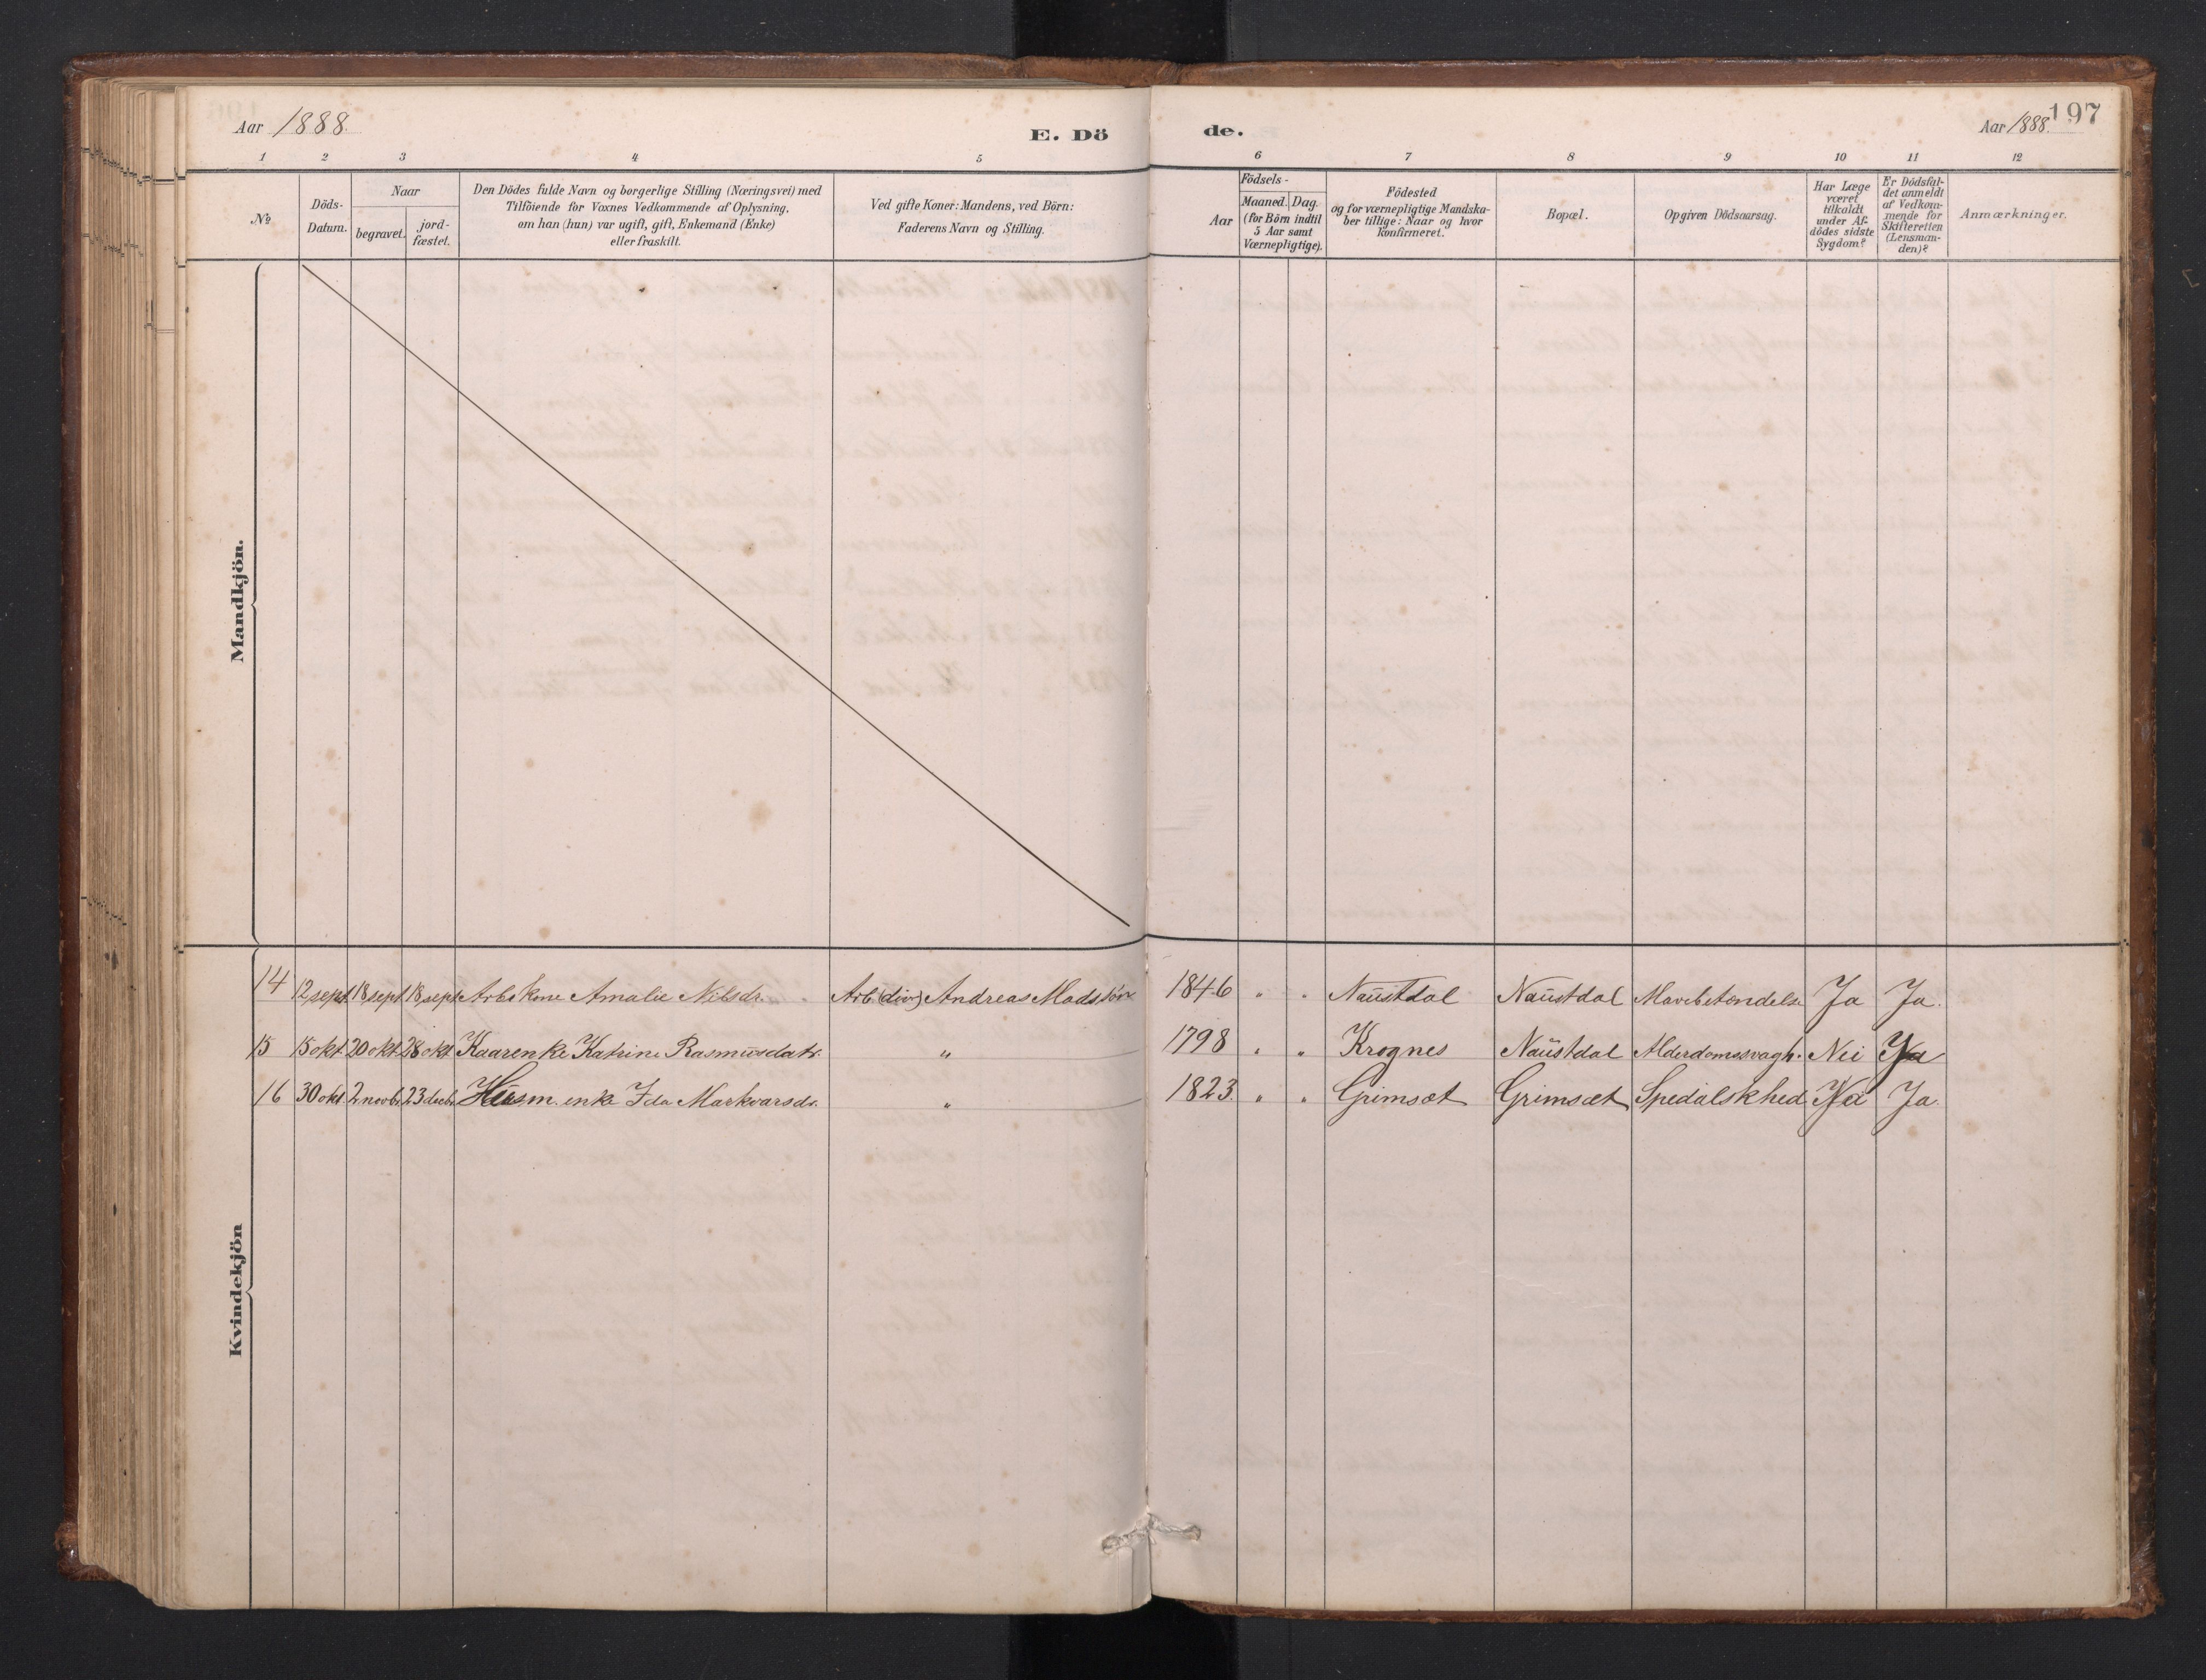 Aar 1888.
E. Dö
de.
Aar 1888.
197
1 2 3 4 5 6 7 8 9 10 11 12
No
Döds-
Datum.
Naar
begravet.
jord-
fæstet.
Den Dödes fulde Navn og borgerlige Stilling (Næringsvei) med
Tilföiende for Voxnes Vedkommende af Oplysning,
om han (hun) var ugift, gift, Enkemand (Enke)
eller fraskilt.
Ved gifte Koner: Mandens, ved Börn:
Faderens Navn og Stilling.
Födsels-
Aar
Maaned. Dag.
(for Börn indtil
5 Aar samt
Værnepligtige).
Födested
og for værnepligtige Mandska-
ber tillige: Naar og hvor
konfirmeret.
Bopæl.
Opgiven Dödsaarsag.
Har Læge
været
tilkaldt
under Af-
dödes sidste
Sygdom?
Er Dödsfal-
det anmeldt
af Vedkom-
mende for
Skifteretten
(Lensman-
den)?
Anmærkninger.
Mandkjön.
Kvindekjön
14 12 sept. 18 sept. 18 sept Arbskone Amalie Nilsdr. Arb. Andreas Madssön 1846 " " Naustdal Naustdal Mavebetændelse Ja Ja.
15 15 okt. 20 okt. 28 okt. Kaarenke Katrine Rasmusdatr. " 1798 " " Krognes Naustdal Alderdomssvagh. Nei Ja
16 30 okt 2 novbr. 23 decbr. Husm. enke Ida Markvarsdr. " 1823. " " Grimsæt Grimsæt Spedalskhed Ja.